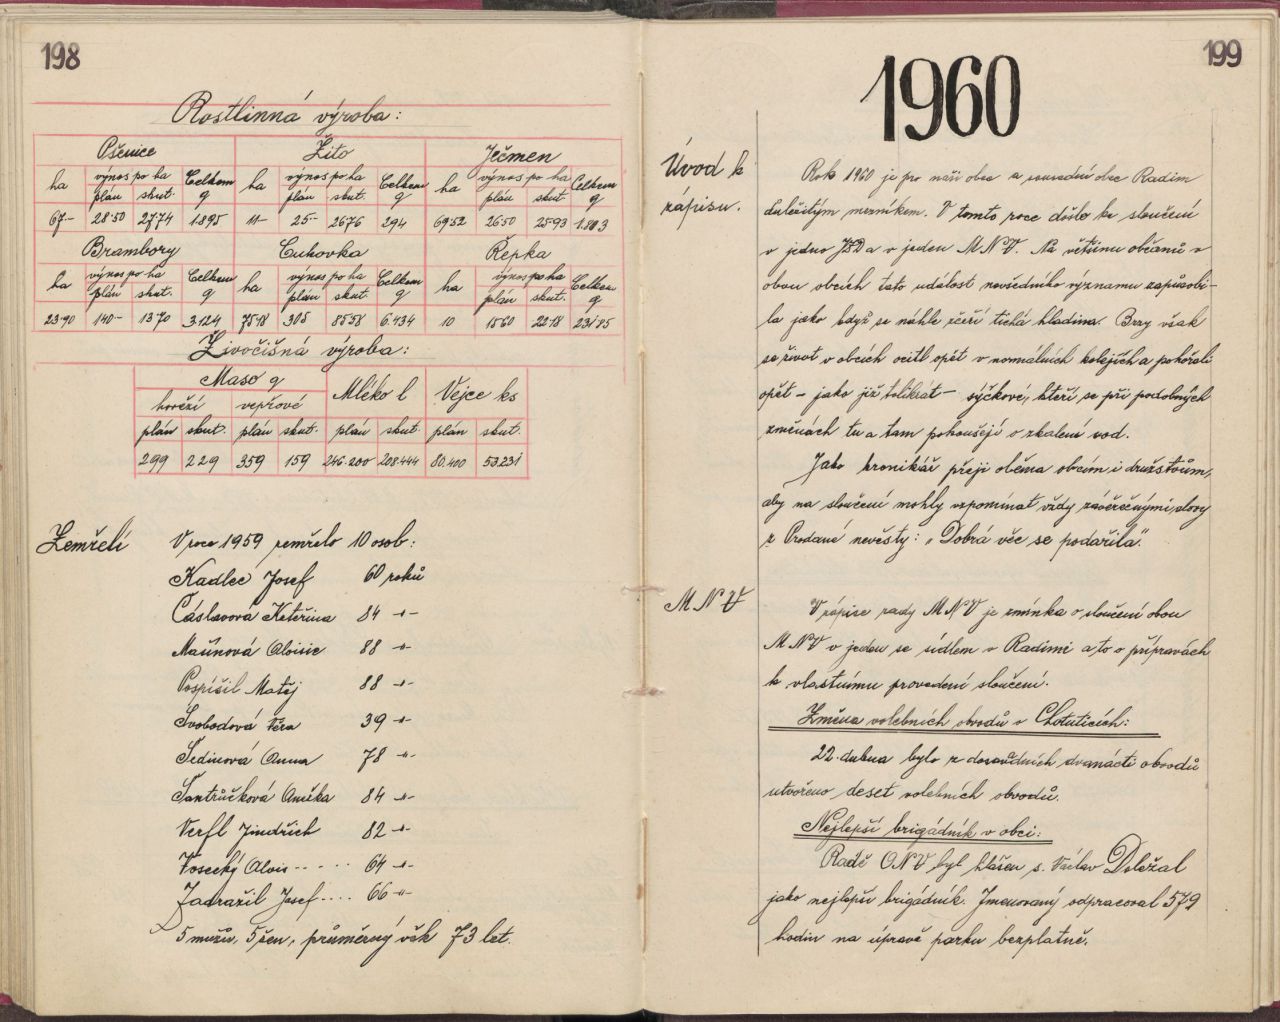 198
Rostlinná výroba:
Pšenice Žito Ječmen
ha výnos po ha Celkem ha výnos po ha Celkem ha výnos po ha Celkem
plán skut. q plán skut. q plán skut. q
67- 28·50 27·74 1.895 11- 25·- 26·76 294 69·52 26·50 25·93 1.803
Brambory Cukovka Řepka
ha výnos po ha Celkem ha výnos po ha Celkem ha výnos po ha Celkem
plán skut. q plán skut. q plán skut. q
23·90 140- 13·70 3.124 75·18 305 85·58 6.434 10 15·60 22·18
Živočišná výroba:
Maso q Mléko l Vejce ks
hovězí vepřové
plán skut. plán skut. plán skut. plán skut.
299 229 359 159 246.200 208.444 80.400 53.231
Zemřelí V roce 1959 zemřelo 10 osob:
Kadlec Josef 60 roků
Čáslavová Kateřina 84 -"-
Mašínová Aloisie 88 -"-
Pospíšil Matěj 88 -"-
Svobodová Věra 39 -"-
Šedinová Anna 78 -"-
Šantrůčková Anežka 84 -"-
Verfl Jindřich 82 -"-
Vosecký Alois ---- 64 -"-
Zadražil Josef .... 66 -"-
5 mužů, 5 žen, průměrný věk 73 let.
199
1960
Úvod k
zápisu.
Rok 1960 je pro naši obec a sousední obec Radim
důležitým mezníkem. V tomto roce došlo ke sloučení
v jedno JZD a v jeden MNV. Na většinu občanů v
obou obcích tato událost nevšedního významu zapůsobi-
la jako když se náhle zčeří tichá hladina. Brzy však
se život v obcích ocitl opět v normálních kolejích a pohořeli
opět - jako již tolikrát - sýčkové, kteří se při podobných
změnách tu a tam pokoušejí o zkalení vod.
Jako kronikář přeji oběma obcím i družstvům,
aby na sloučení mohly vzpomínat vždy závěrečnými slovy
z Prodané nevěsty: „Dobrá věc se podařila".
MNV
V zápise rady MNV je zmínka o sloučení obou
MNV v jeden se sídlem v Radimi a to o přípravách
k vlastnímu provedení sloučení.
Změna volebních obvodů v Chotuticích:
22. dubna bylo z dosavadních dvanácti obvodů
utvořeno deset volebních obvodů.
Nejlepší brigádník v obci:
Radě ONV byl hlášen s. Václav Doležal
jako nejlepší brigádník. Jmenovaný odpracoval 579
hodin na úpravě parku bezplatně.